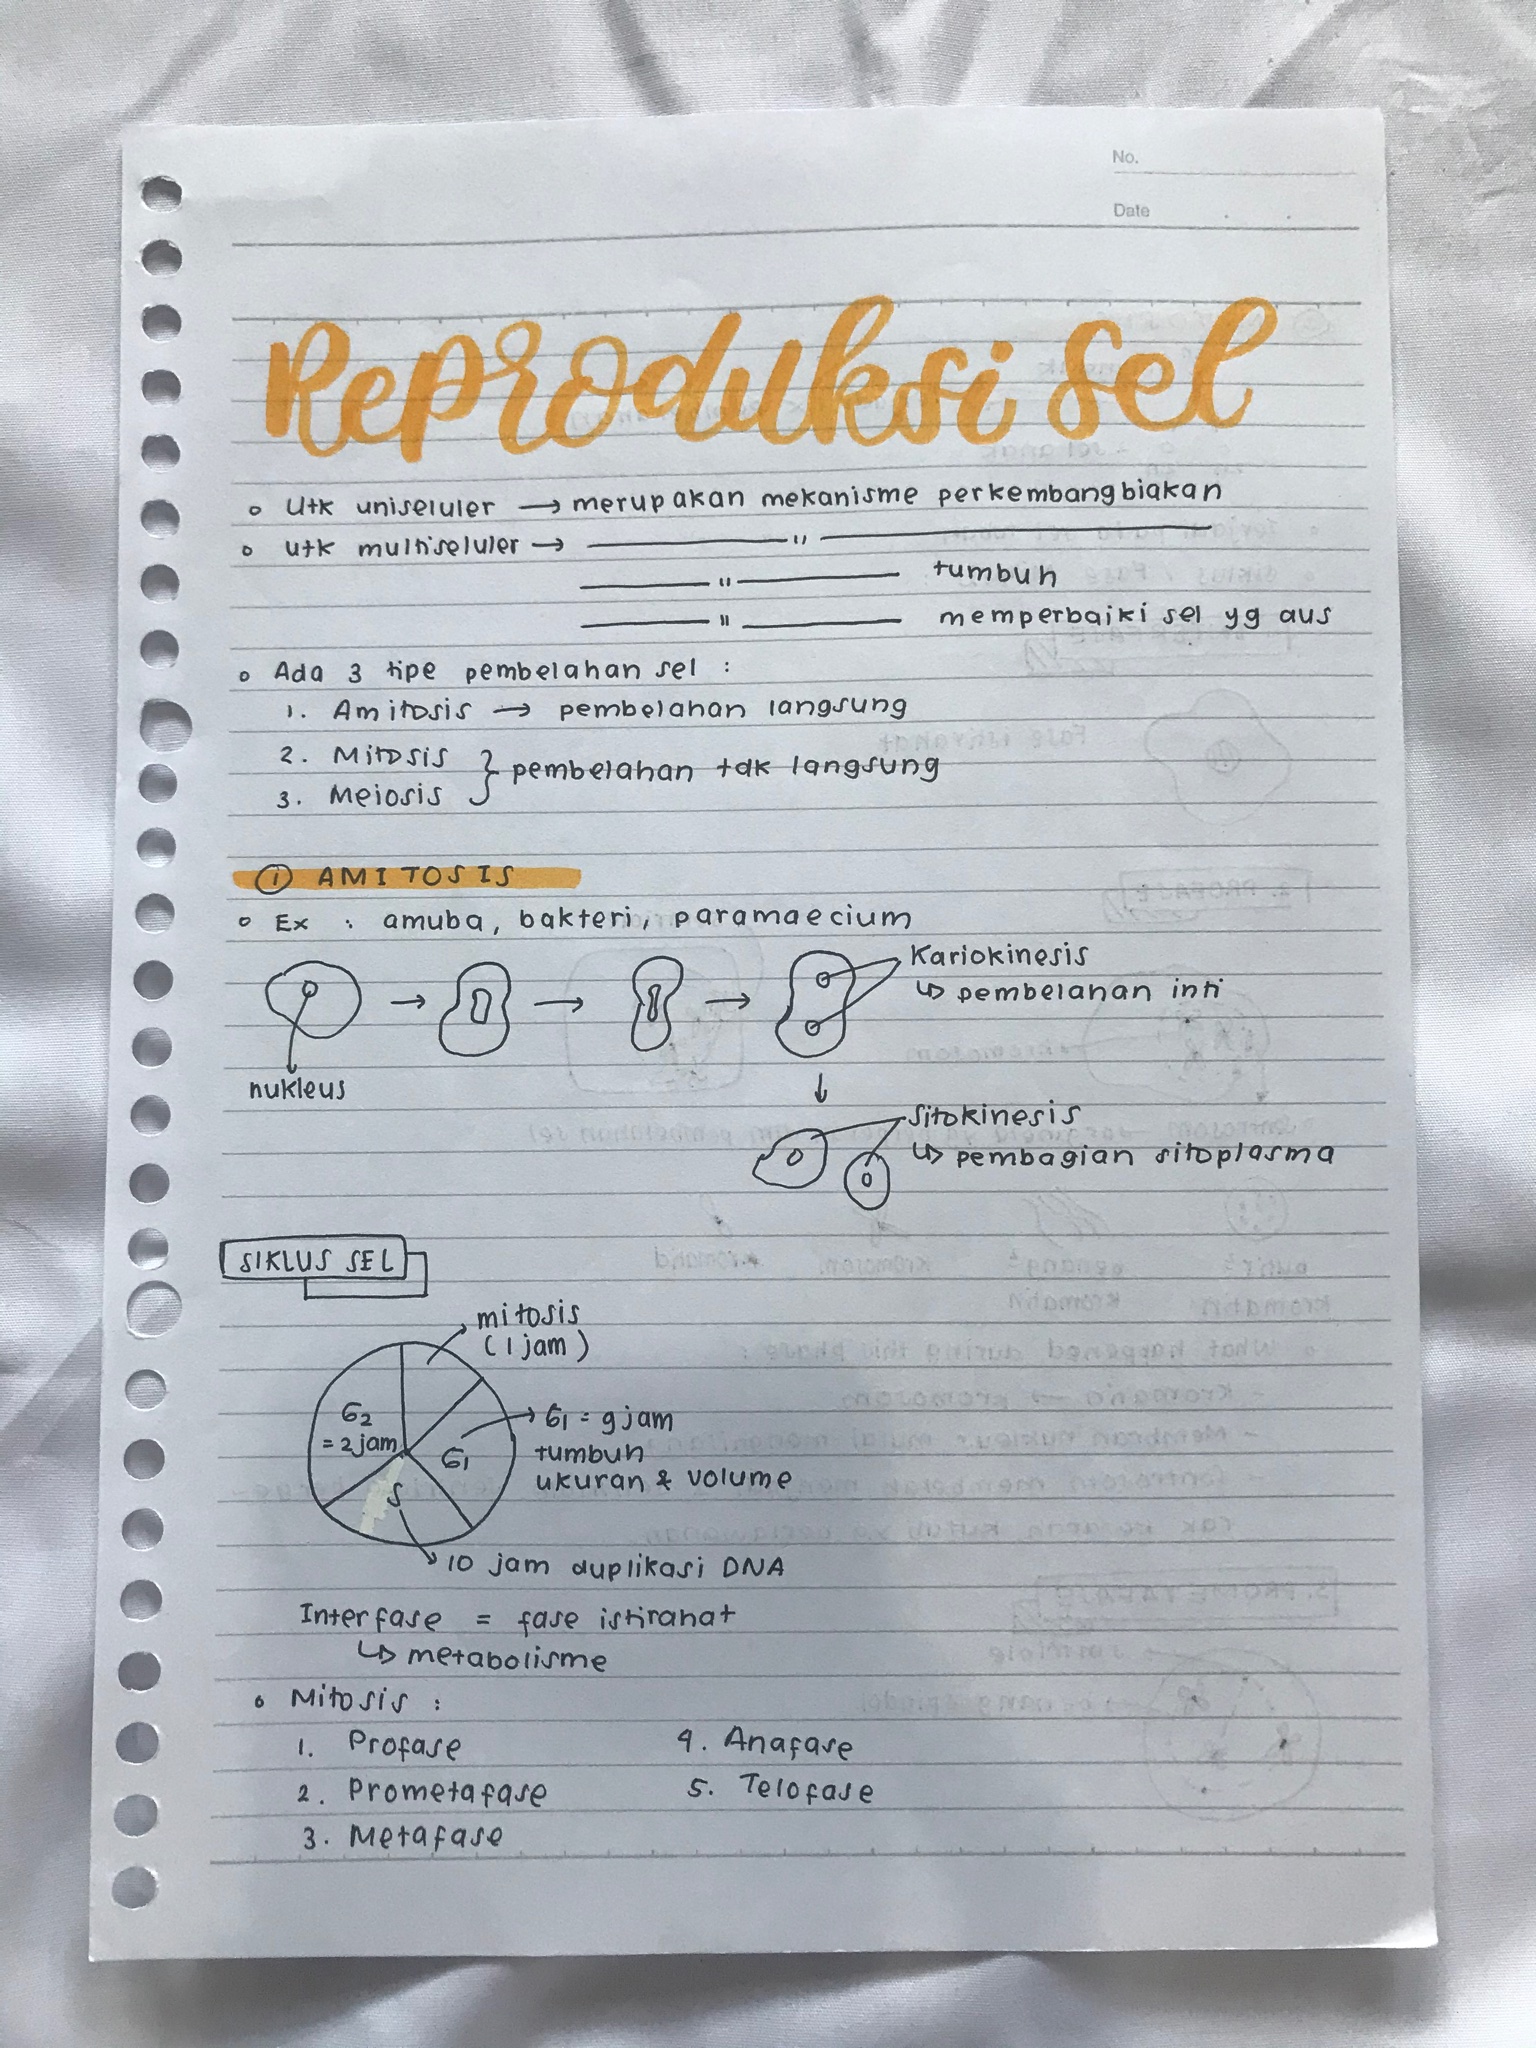 No.
Date
Reproduksi sel
o Utk uniseluler → merupakan mekanisme perkembangbiakan
o utk multiseluler → —— " ——
—— " —— tumbuh
—— " —— memperbaiki sel yg aus
o Ada 3 tipe pembelahan sel :
1. Amitosis → pembelahan langsung
2. Mitosis
3. Meiosis } pembelahan tdk langsung
① AMITOSIS
o Ex : amuba, bakteri, paramaecium
Kariokinesis
↳ pembelahan inti
nukleus
Sitokinesis
↳ pembagian sitoplasma
SIKLUS SEL
mitosis
(1 jam)
G2
= 2 jam
G1
G1 = 9 jam
tumbuh
ukuran & volume
S
10 jam duplikasi DNA
Interfase = fase istirahat
↳ metabolisme
o Mitosis :
1. Profase 4. Anafase
2. Prometafase 5. Telofase
3. Metafase